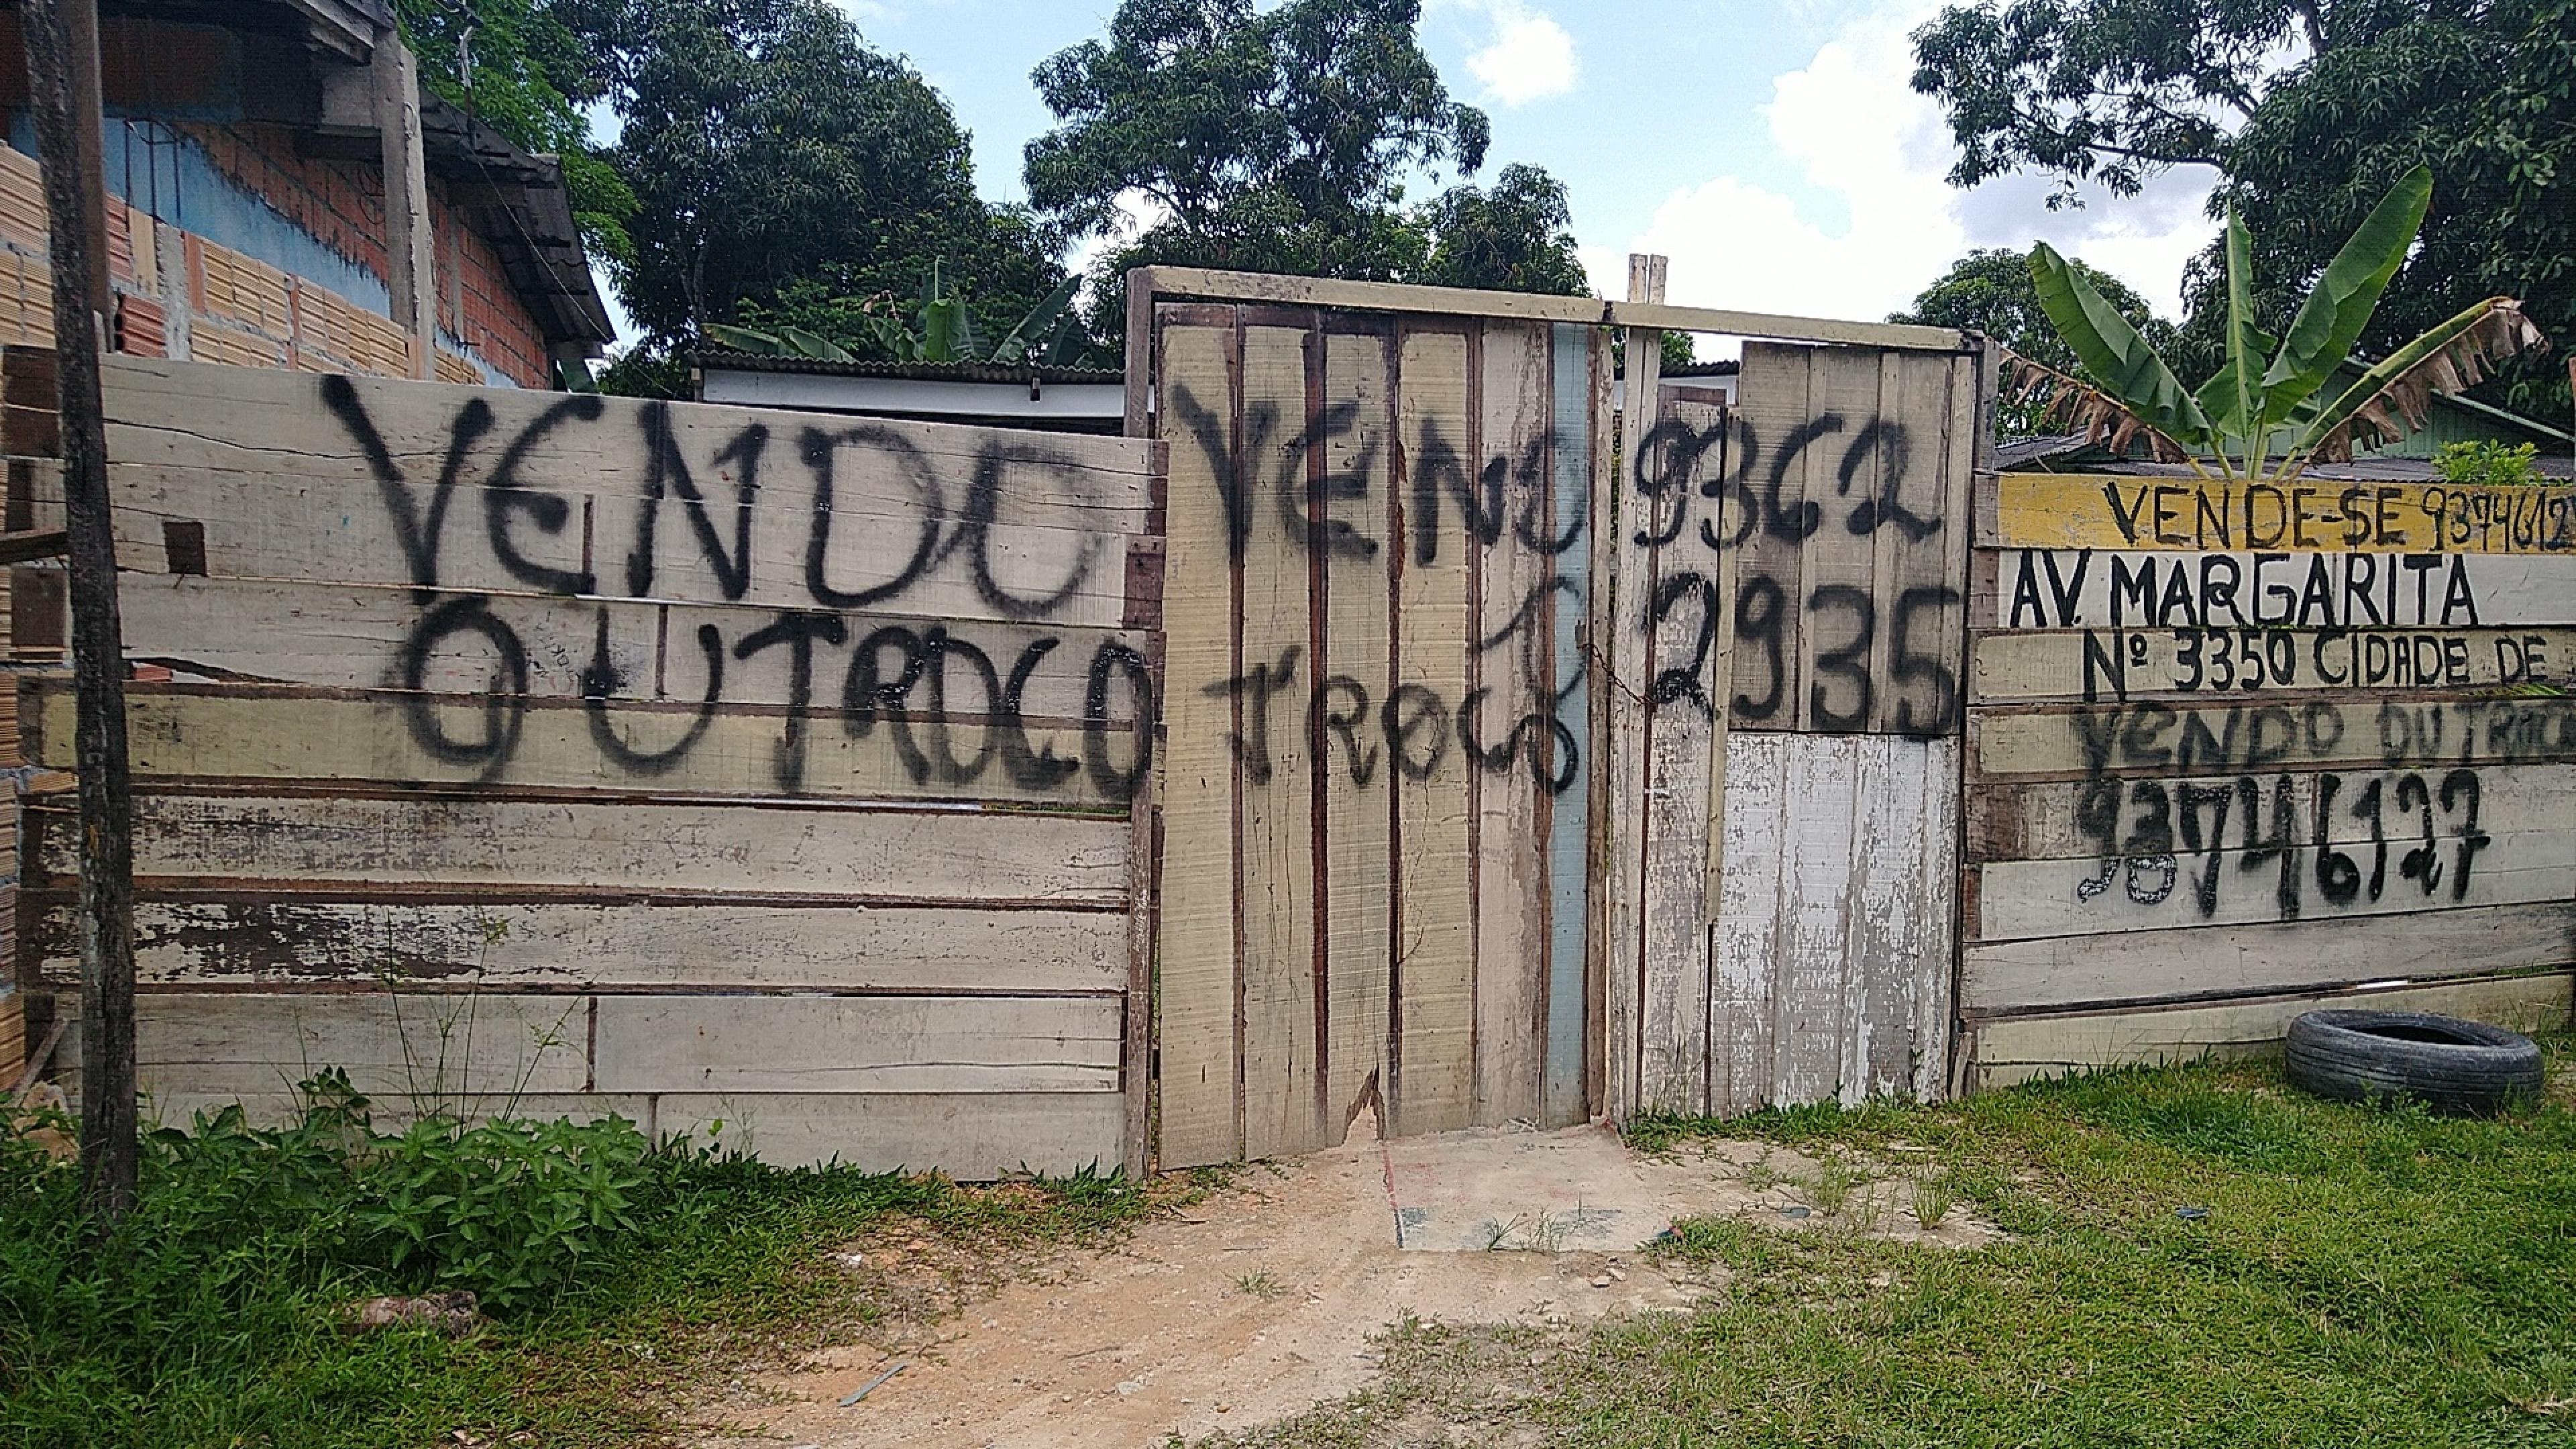 VENDO
OU TROCO
VENDO
TROCO
9362
2935
VENDE-SE 9374612
AV. MARGARITA
Nº 3350 CIDADE DE
VENDO OU TROCO
93746127
98